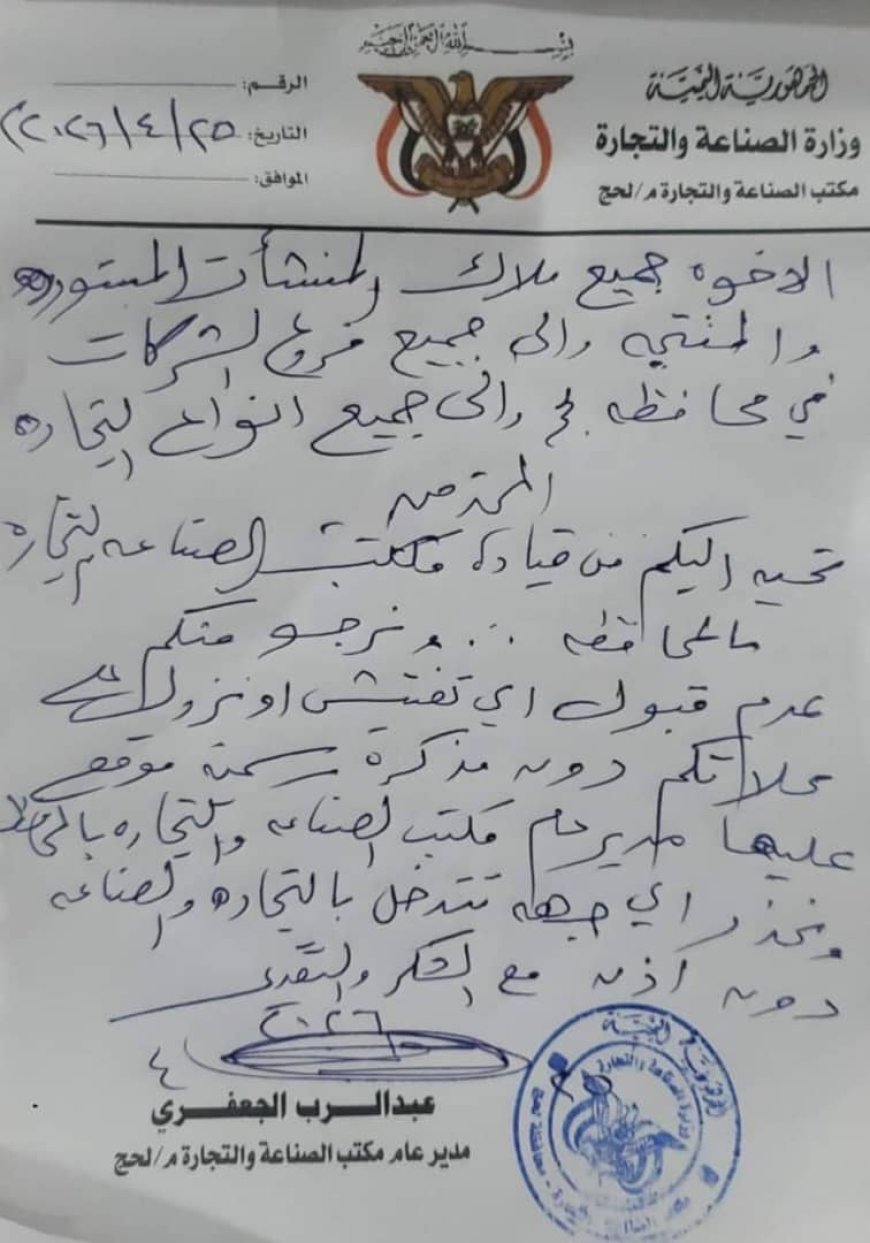 بسم الله الرحمن الرحيم
الجمهورية اليمنية
وزارة الصناعة والتجارة
مكتب الصناعة والتجارة م/لحج
الرقم:
التاريخ: ٢٠٢٦/٤/٢٥
الموافق:
الاخوه جميع ملاك المنشأت المستورده
والمنتجه والى جميع فروع الشركات
في محافظه لحج والى جميع انواع التجاره
المحترمين
تحيه اليكم من قيادة مكتب الصناعه والتجاره
بالمحافظه .. ونرجو منكم
عدم قبول اي تفتيش او نزول على
محلاتكم دون مذكرة رسمية موقع
عليها مدير عام مكتب الصناعه والتجاره بالمحافظه
ونحذر اي جهه تتدخل بالتجاره والصناعه
دون أذن مع الشكر والتقدير
٢٠٢٦
٤
عبدالرب الجعفري
مدير عام مكتب الصناعة والتجارة م/لحج
الجمهورية اليمنية
وزارة الصناعة والتجارة